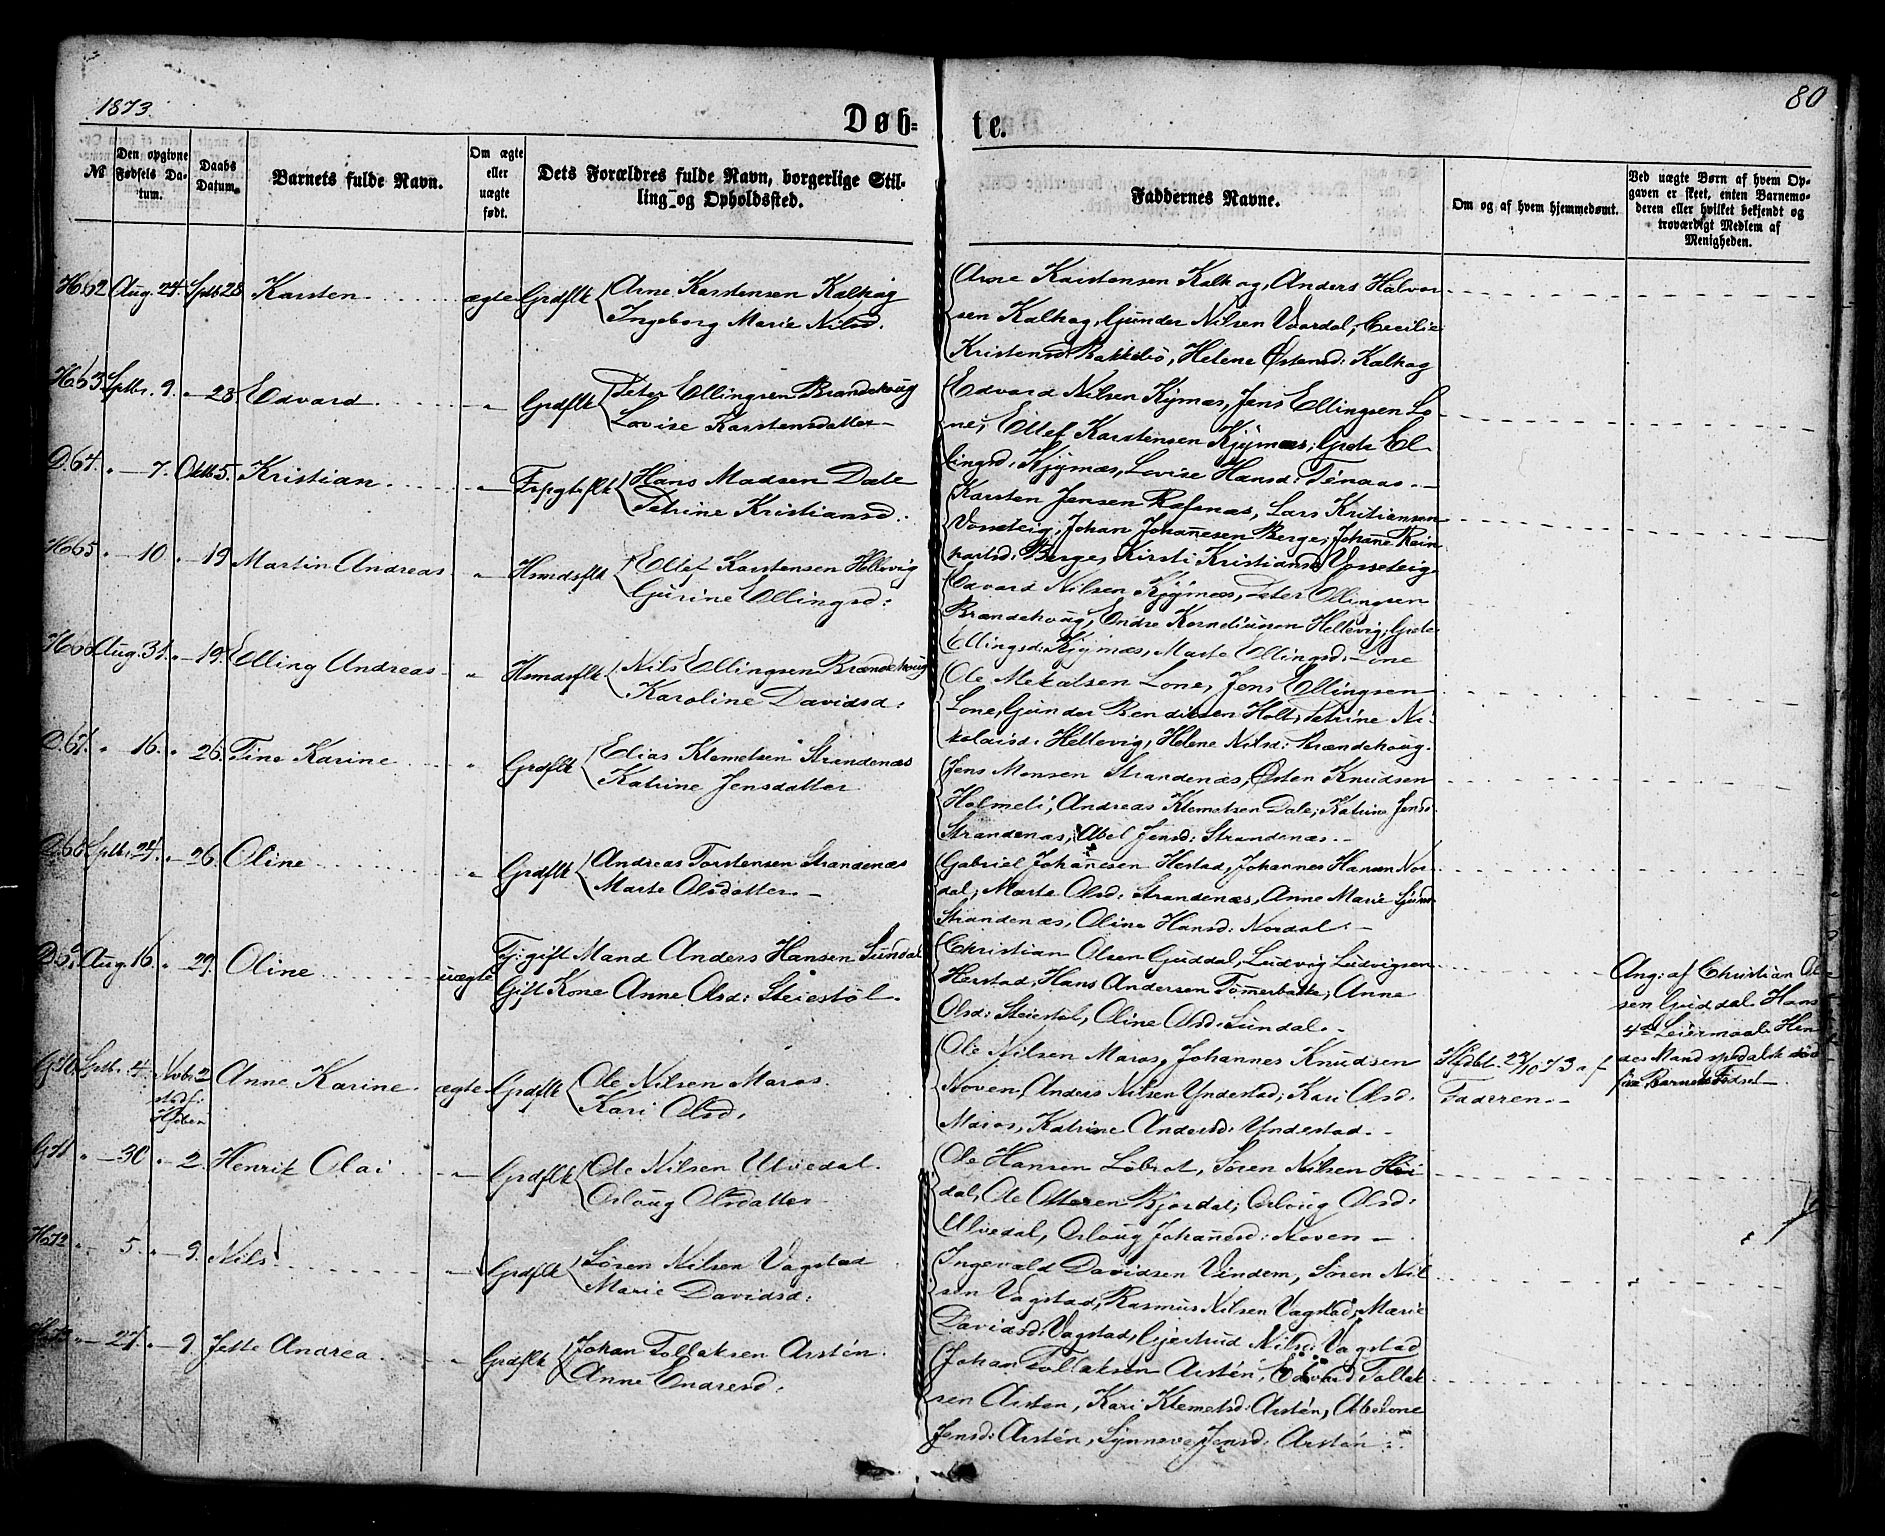 1873.
80
Døb-
te.
№
Den opgivne Fødsels Datum.
Daabs Datum.
Barnets fulde Navn.
Om ægte eller uægte født.
Dets Forældres fulde Navn, borgerlige Stilling og Opholdssted.
Faddernes Navne.
Om og af hvem hjemmedøbt.
Ved uægte Børn af hvem Opgaven er skeet, enten Barnemoderen eller hvilket bekjendt og troværdigt Medlem af Menigheden.
H.62 Aug. 24. Sptb 28 Karsten ægte Grdflk Arne Karstensen Kalhag
Ingeborg Marie Nilsd.
Arne Karstensen Kalhag, Anders Halvor
sen Kalhag, Gunder Nilsen Vaardal, Cecilie
Kristensd: Bakkebø, Helene Østensd: Kalhag
H.63. Sptbr. 9. " 28. Edvard " Grdflk Peter Ellingsen Brændehoug
Lovise Karstensdatter
Edvard Nilsen Kjymæs, Jens Ellingsen Lo-
ne, Ellef Karstensen Kjymæs; Grete El-
lingsd: Kjymæs, Lovise Hansd: Tenaas.
D.64. " 7. Oktb 5. Kristian " Hans Madsen Dale
Petrine Kristiansd.
Karsten Jensen Rafsnæs, Lars Kristiansen
Vorseteig, Johan Johanesen Berge; Johane Rein
hartsd: Berge, Kirsti Kristiansd: Vorseteig
H.65 " 10 " 19 Martin Andreas " Hsmdsflk Ellef Karstensen Hellevig
Gurine Ellingsd:
Edvard Nilsen Kjymæs, Peter Ellingsen
Brændehoug, Endre Korneliussen Hellevig; Grete
Ellingsd: Kjymæs, Marte Ellingsd:
H.66 Aug. 31. " 19. Elling Andreas " Hsmdsflk Nils Ellingsen Brændehoug
Karoline Davidsd:
Ole Mekalsen Lone, Jens Ellingsen
Lone, Gunder Bendiksen Holt, Petrine Ni-
kolaisd: Hellevig, Helene Nilsd: Brændehoug.
D.67. " 16. " 26. Tine Karine " Grdflk Elias Klemetsen Strandenæs
Katrine Jensdatter
Jens Monsen Strandenæs, Østen Knudsen
Holmeli, Andreas Klemetsen Dale; Katrine Jensd:
Strandenæs, Abel Jensd: Strandenæs.
D.68 Sptbr. 24. " 26. Oline " Grdflk Andreas Torstensen Strandenæs
Marte Olsdatter
Gabriel Johanesen Hestad, Johannes Hansen Nor-
dal; Marte Olsd: Strandenæs, Anne Marie
Strandenæs, Oline Hansd: Nordal.
D.69 Aug. 16. " 29. Oline uægte Fj: gift Mand Anders Hansen Sundal
Gift Kone Anne Olsd: Steiestøl.
Christian Olsen Guddal, Ludvig Ludvigsen
Herstad, Hans Andersen Tømerbakke; Anne
Olsd: Steiestøl, Oline Olsd: Sundal.
Ang: af Christian Ol
sen Guddal. Hans
4de Leiermaal. Hen
des Mand spedalsk død
før Barnets Fødsel
G.70 Sptbr. 4. Novbr 2 Anne Karine ægte Grdflk Ole Nilsen Maras.
Kari Olsd.
Ole Nilsen Maras, Johannes Knudsen
Noven, Anders Nilsen Yndestad; Kari Olsd.
Maras, Katrine Andersd: Yndestad.
Hdbt. 23/10 73 af
Faderen.
G.71 " 30 " 2. Henrik Olai " Grdflk Ole Nilsen Ulvedal.
Orloug Olsdatter
Ole Hansen Løbrot, Søren Nilsen Hei
dal, Ole Ottesen Bjordal; Orloug Olsd:
Ulvedal, Orloug Johanesd: Noven
H.72 " 5. " 9. Nils " Grdflk Søren Nilsen Vagstad
Marie Davidsd:
Ingevald Davidsen Vindem, Søren Nil
sen Vagstad, Rasmus Nilsen Vagstad; Marie
Davidsd: Vagstad, Gjertrud Nilsd: Vagstad
H.73 " 27. " 9. Jette Andrea " Grdflk Johan Tollaksen Arstén.
Anne Endresd:
Johan Tollaksen Arstén, Edvard Tollak
sen Arstén, Kari Klemetsd: Arstén, Abelone
Jensd: Arstén, Synneve Jensd: Arstén.